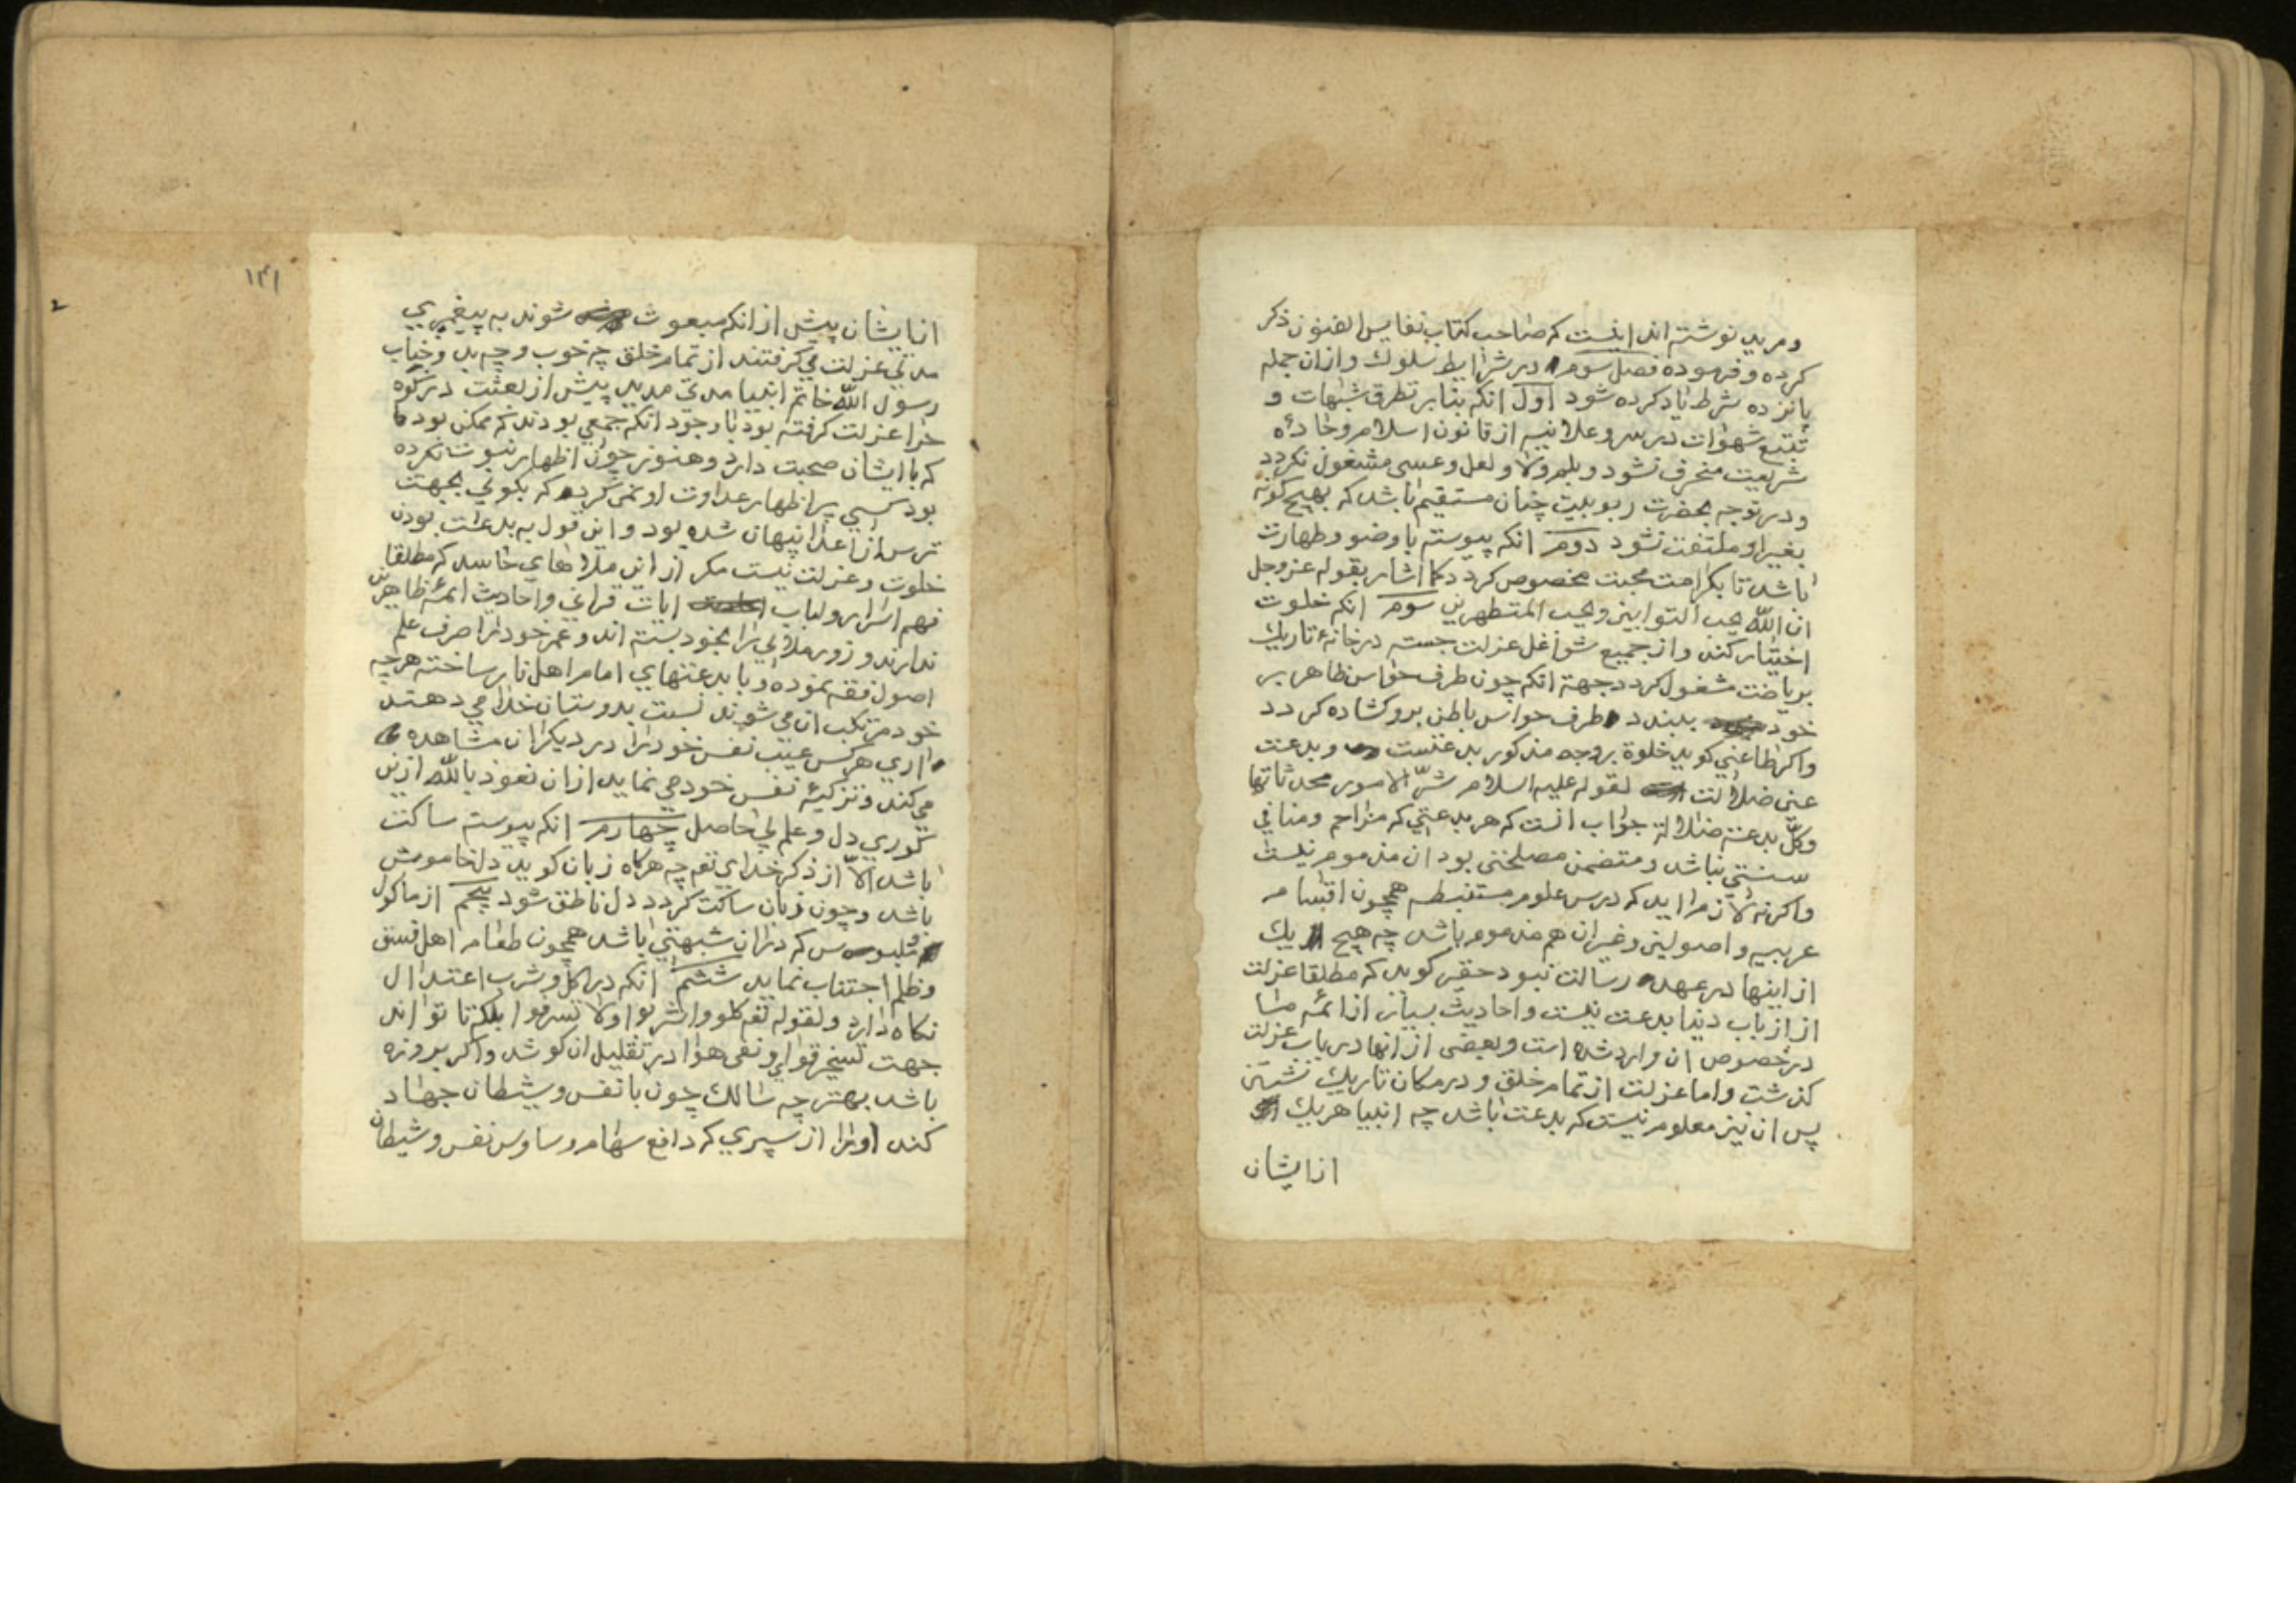 ومرید نوشته اند اینست که صاحب کتاب نفایس الفنون ذکر
کرده و فرموده فصل سوم در شرایط سلوك وازان جمله
پانزده شرط یاد کرده شود اول انکه بنابر تطرق شبهات و
تتبع شهوات در سر و علانیه از قانون اسلام وجادۀ
شریعت منحرف نشود و بلم ولا و لعل وعسی مشغول نکردد
ودر توجه بحضرت ربوبیت چنان مستقیم باشد که بهیچ کونه
بغیر او ملتفت نشود دوم انکه پیوسته با وضو وطهارت
باشد تا بکرامت محبت مخصوص کردد کما اشار بقوله عزوجل
ان اللّه یحب التوابین ویحب المتطهرین سوم انکه خلوت
اختیار کند واز جمیع شواغل عزلت جسته در خانۀ تاریك
بریاضت مشغول کردد جهة انکه چون طرف حواس ظاهر بر
خود ببندد طرف حواس باطن برو کشاده کردد
واکر طاعنی کوید خلوة بروجه مذکور بدعتست وبدعت
عین ضلالت لقوله علیه اسلام شرّ الامور محدثاتها
وکلّ بدعة ضلالة جواب انست که هر بدعتی که مزاحم ومنافی
سنتی نباشد ومتضمن مصلحتی بود ان مذموم نیست
واکرنه لازم اید که درس علوم مستنبطه همچون اقسام
عربیه و اصولین وغیر ان هم مذموم باشد چه هیچ یك
از اینها در عهد رسالت نبود حقیر کوید که مطلقا عزلت
از ارباب دنیا بدعت نیست واحادیث بسیار از ائمه ما
در خصوص ان وارد شده است وبعضی از انها در باب عزلت
کذشت واما عزلت از تمام خلق و در مکان تاریك نشستن
پس ان نیز معلوم نیست که بدعت باشد چه انبیا هریك
ازایشان
ازایشان پیش از انکه مبعوث شوند به پیغمبری
مدتی عزلت می کرفتند از تمام خلق چه خوب وچه بد وجناب
رسول اللّه خاتم انبیا مدتی مدید پیش از بعثت در کوه
حرا عزلت کرفته بود با وجود انکه جمعی بودند که ممکن بود
که با ایشان صحبت دارد وهنوز چون اظهار نبوت نکرده
بود کسی اظهار عداوت او نمی کرد که بکوئی بجهت
ترس از اعدا پنهان شده بود واین قول به بدعت بودن
خلوت وعزلت نیست مکر از این ملاهای حاسد که مطلقا
فهم اسرار ولباب ایات قرانی واحادیث ائمۀ طاهرین
ندارند و زور ملائی را بخود بسته اند وعمر خود را صرف علم
اصول فقه نموده و با بدعتهای امام اهل نار ساخته هرچه
خود مرتکب ان می شوند نسبت بدوستان خدا می دهند
اری هرکس عیب نفس خود را در دیکران مشاهده
می کند وتزکیۀ نفس خود می نماید ازان نعوذ باللّه ازین
کوری دل وعلم بی حاصل چهارم انکه پیوسته ساکت
باشد الّا از ذکر خدای تعم چه هرکاه زبان کوید دل خاموش
باشد وچون زبان ساکت کردد دل ناطق شود پنجم از ماکول
وملبوس که دران شبهتی باشد همچون طعام اهل فسق
وظلم اجتناب نماید ششم انکه در اکل وشرب اعتدال
نکاه دارد ولقوله تعم کلوا واشربوا ولا تسرفوا بلکه تا تواند
جهت تسخیر قوای ونفی هوا در تقلیل ان کوشد واکر بروزه
باشد بهتر چه سالك چون با نفس وشیطان جهاد
کند اورا از سپری که دافع سهام وساوس نفس وشیطان
۱۳۱